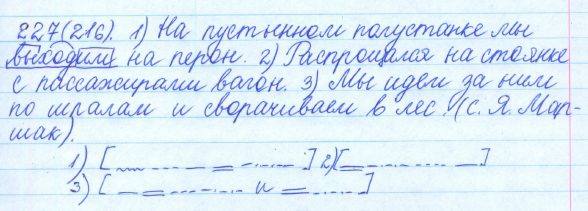 227(216). 1) На пустынном полустанке мы
выходим на перон. 2) Распрощался на стоянке
с пассажирами вагон. 3) Мы идем за ним
по шпалам и сворачиваем в лес. (С. Я. Мар-
шак).
1) [ ] 2) [ ]
3) [ и ]